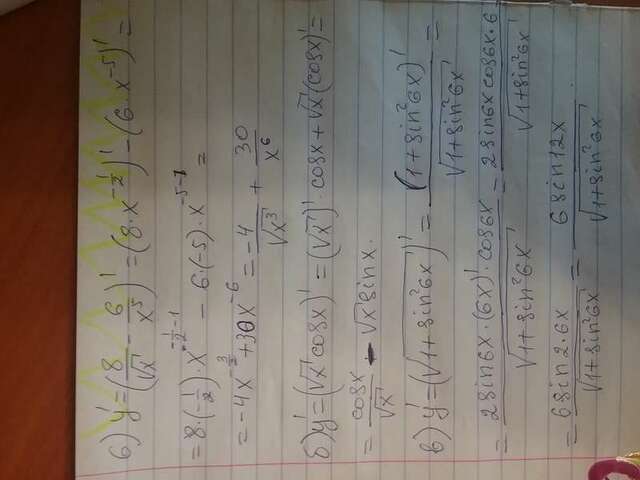 б) y' = (8/√x - 6/x⁵)' = (8·x^(-1/2))' - (6·x^(-5))' =
= 8·(-1/2)·x^(-1/2-1) - 6·(-5)·x^(-5-1) =
= -4x^(-3/2) + 30x^(-6) = -4/√x³ + 30/x⁶
б) y' = (√x cosx)' = (√x)'·cosx + √x(cosx)' =
= cosx/√x - √x sinx.
в) y' = (√(1+sin²6x))' = (1+sin²6x)'/√(1+sin²6x) =
= 2sin6x·(6x)'·cos6x/√(1+sin²6x) = 2sin6x cos6x·6/√(1+sin²6x)
= 6sin2·6x/√(1+sin²6x) = 6sin12x/√(1+sin²6x).